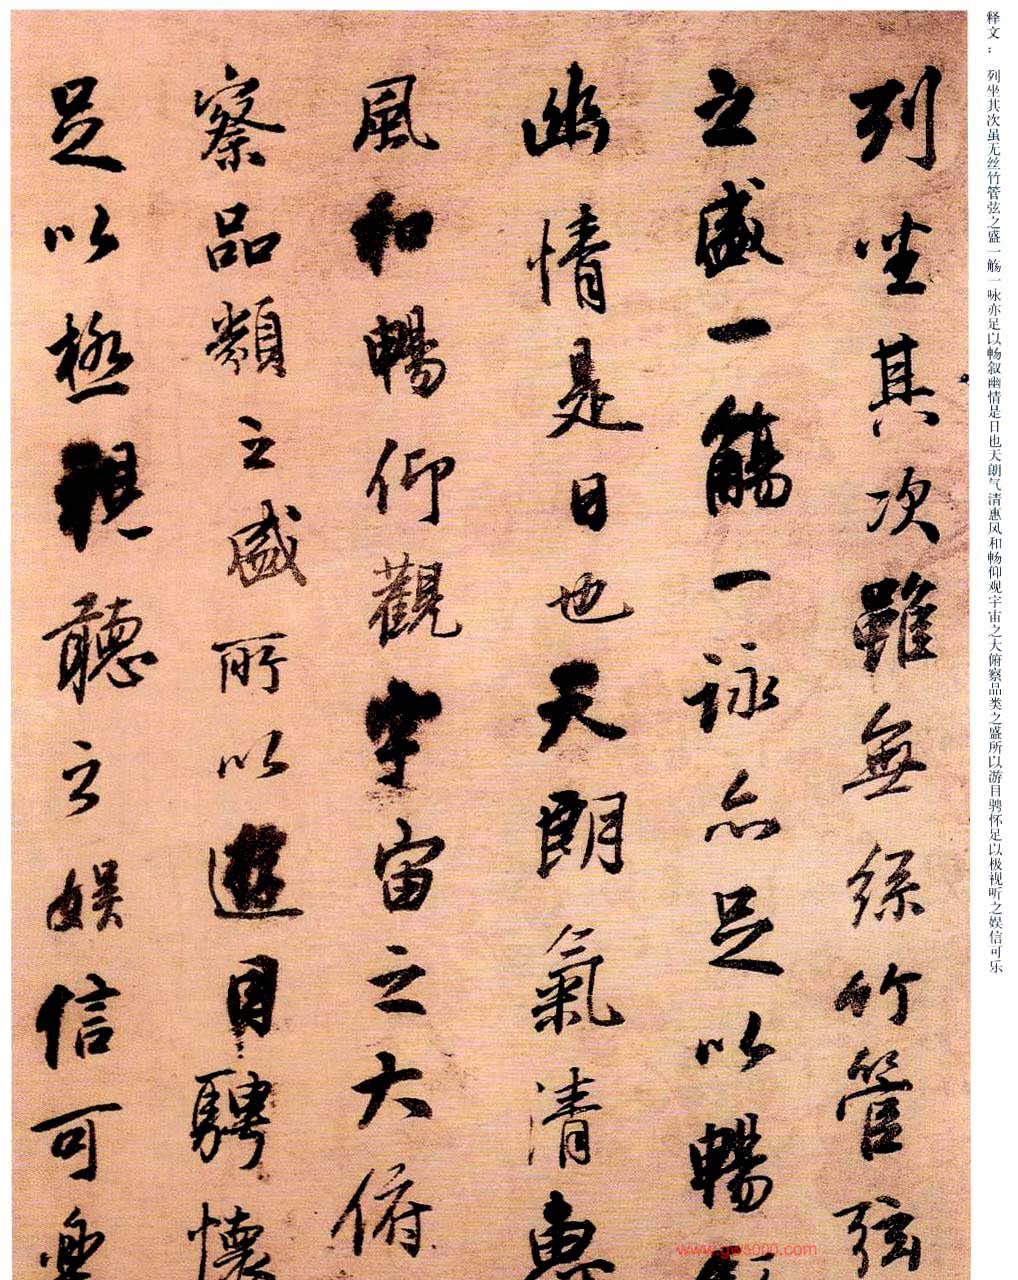 释文： 列坐其次虽无丝竹管弦之盛一觞一咏亦足以畅叙幽情是日也天朗气清惠风和畅仰观宇宙之大俯察品类之盛所以游目骋怀足以极视听之娱信可乐
列坐其次雖無絲竹管弦
之盛一觴一詠亦足以暢
幽情是日也天朗氣清惠
風和暢仰觀宇宙之大俯
察品類之盛所以遊目騁懷
足以極視聽之娛信可樂
www.gw5000.com